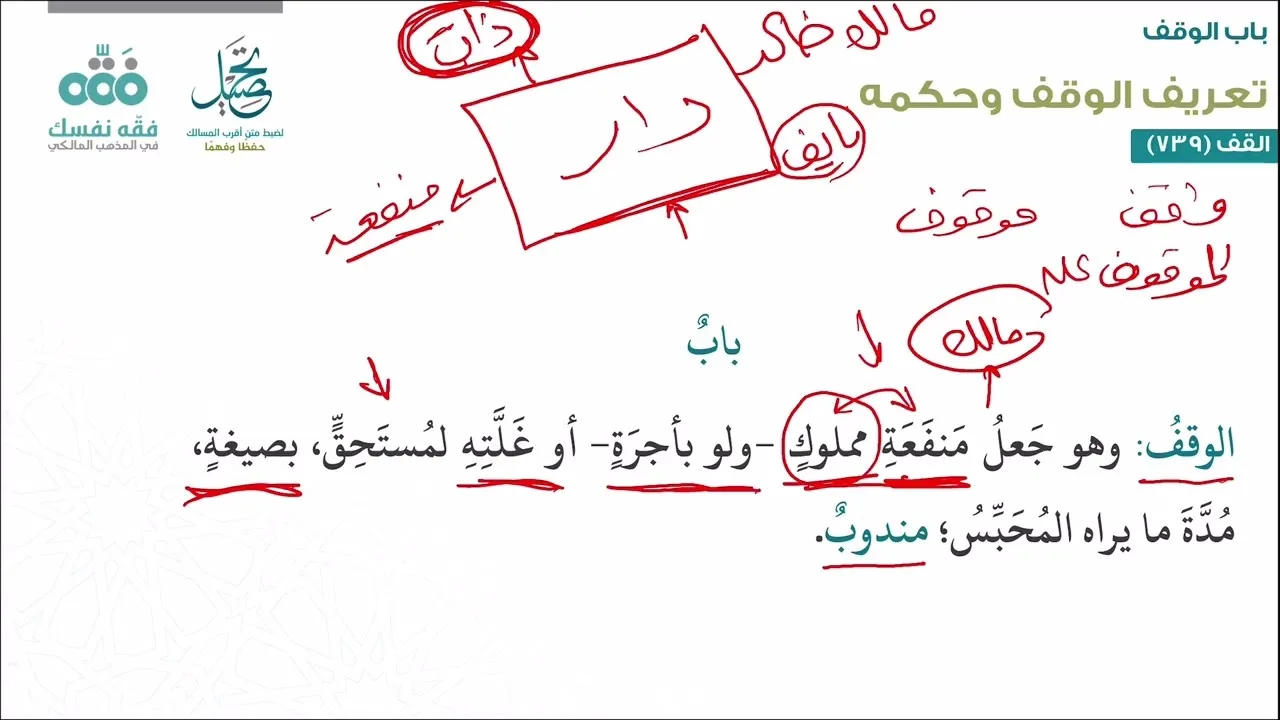 باب الوقف
تعريف الوقف وحكمه
القف (٧٣٩)
تحصيل
لضبط متن أقرب المسالك
حفظًا وفهمًا
فقّه نفسك
في المذهب المالكي
مالك خالد
ذات
دار
منفعة
واقف موقوف
الموقوف عليه
مالك
بابٌ
الوقفُ: وهو جَعلُ مَنفَعَةِ مملوكٍ -ولو بأجرَةٍ- أو غَلَّتِهِ لمُستَحِقٍّ، بصيغةٍ،
مُدَّةَ ما يراه المُحَبِّسُ؛ مندوبٌ.